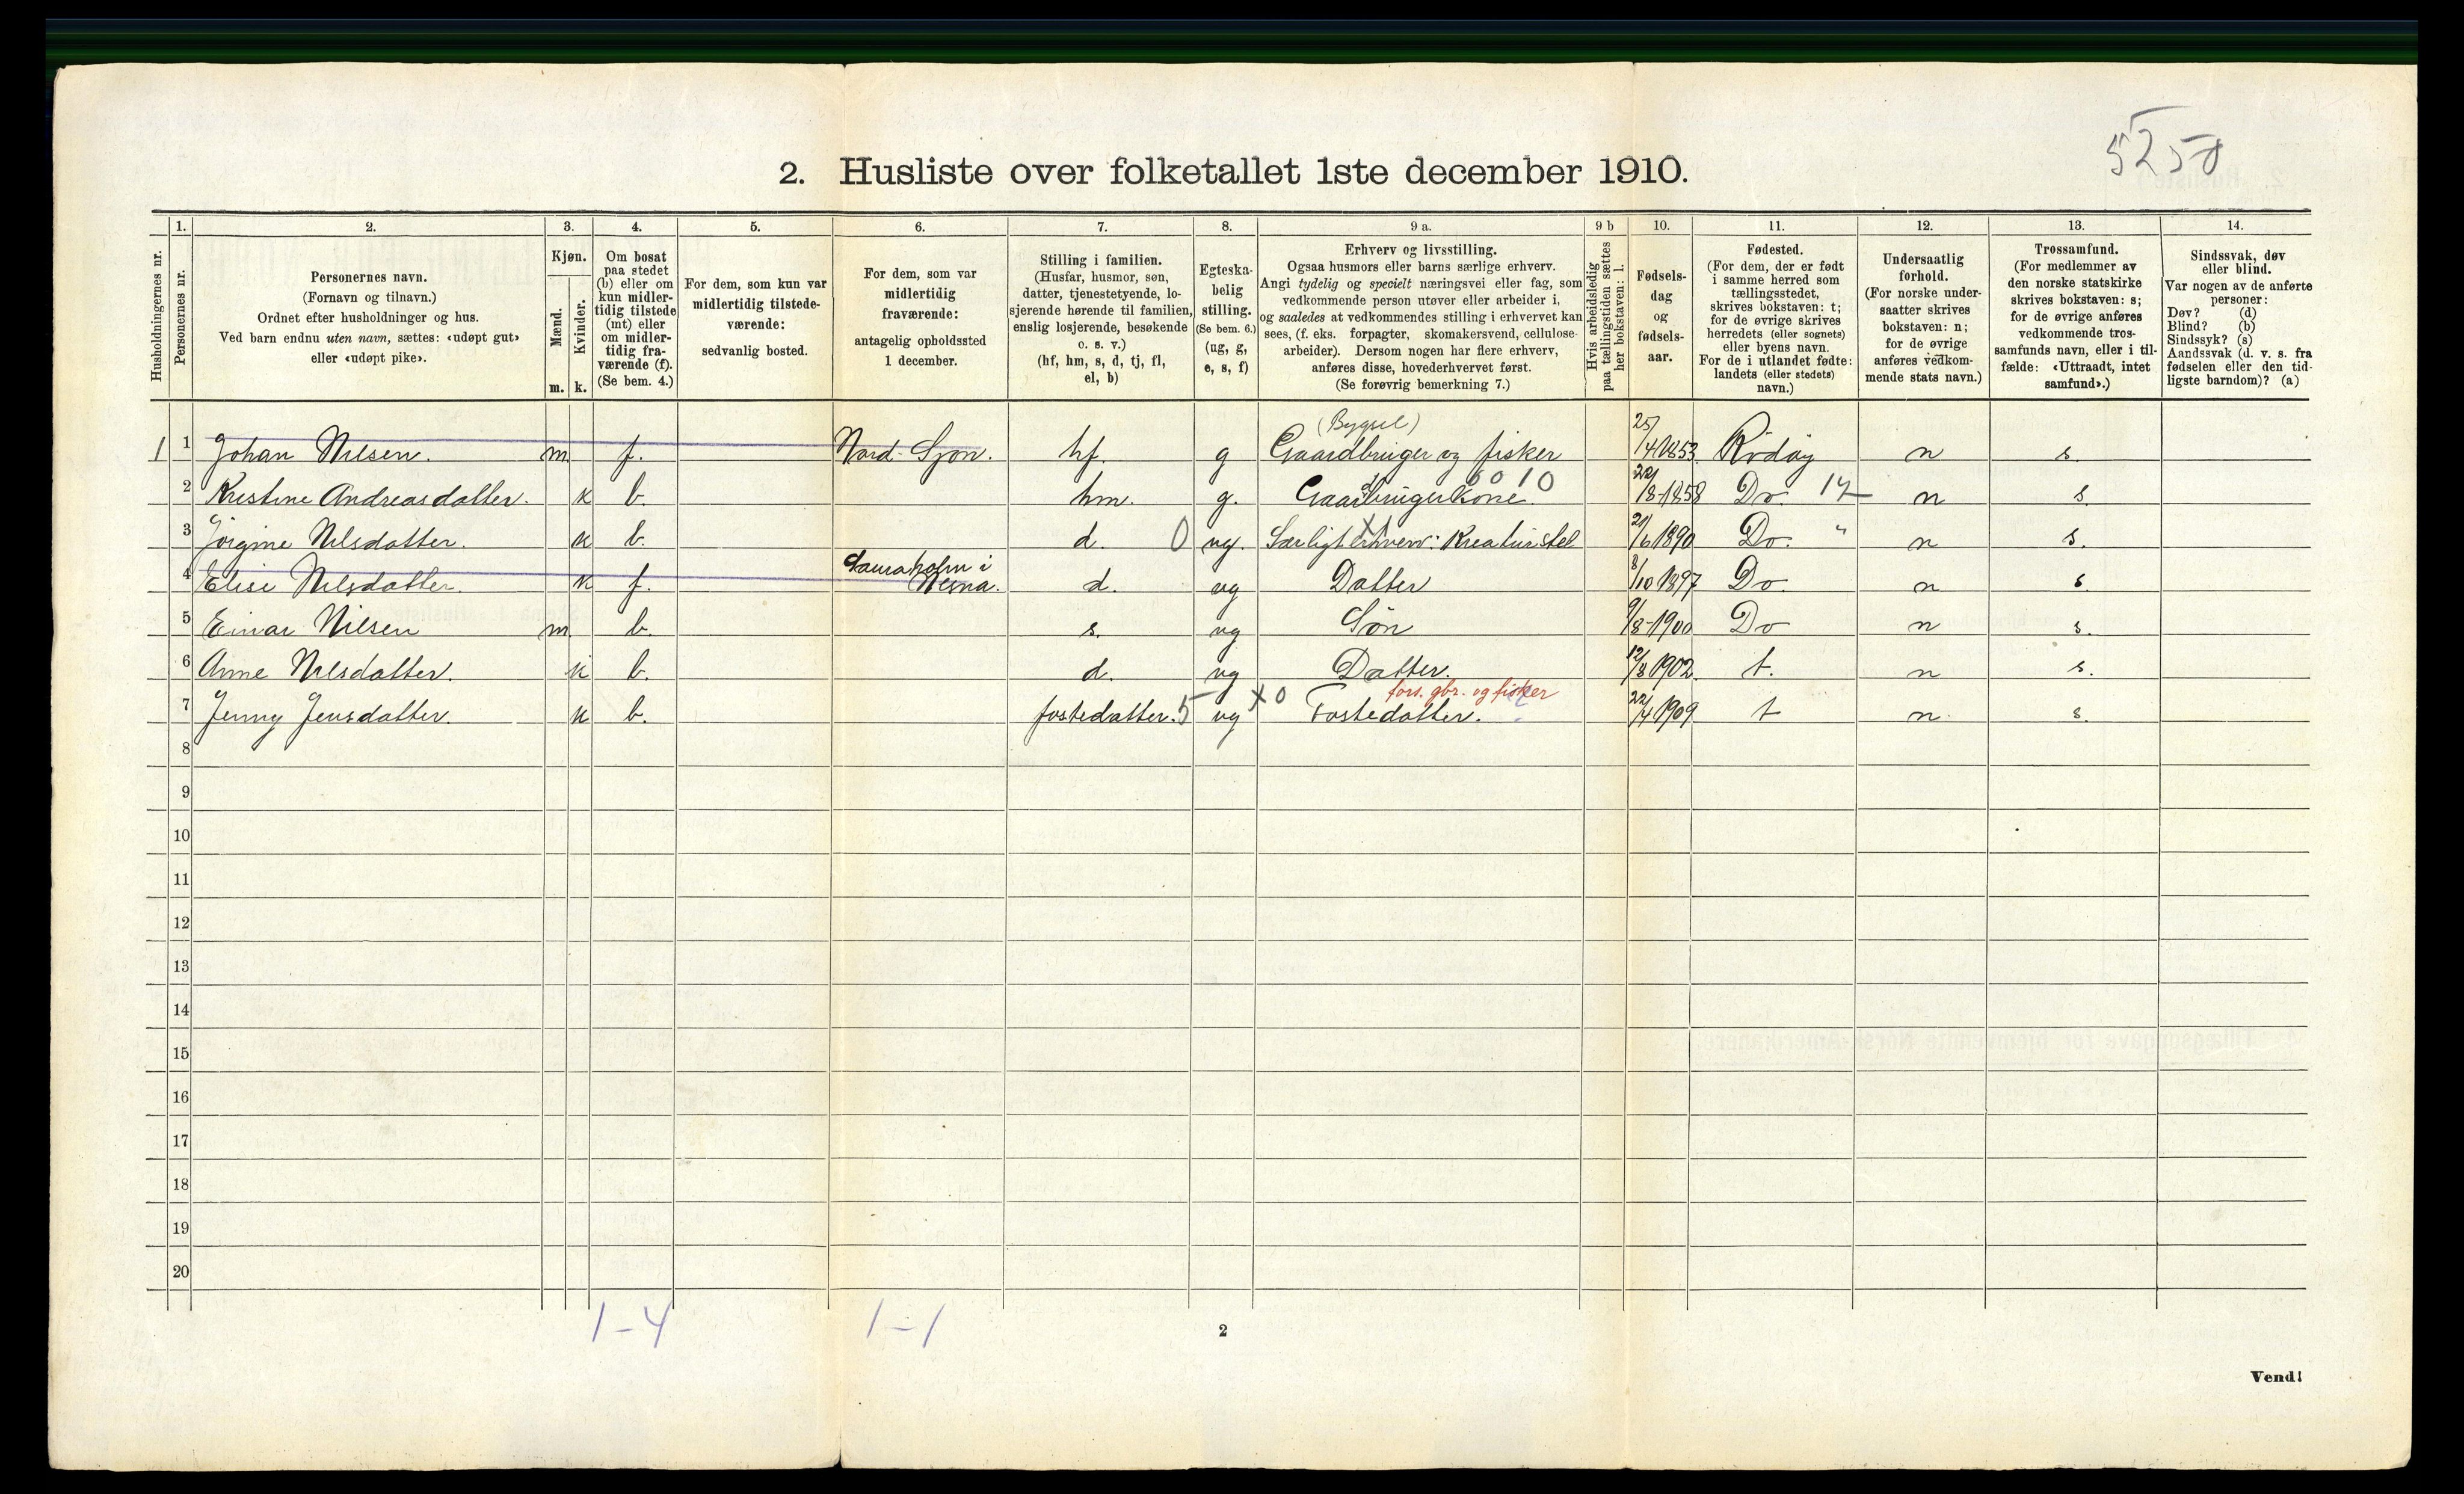 5250
2. Husliste over folketallet 1ste december 1910.
Husholdningernes nr.
1. Personernes nr.
2. Personernes navn. (Fornavn og tilnavn.) Ordnet efter husholdninger og hus. Ved barn endnu uten navn, sættes: «udøpt gut» eller «udøpt pike».
3. Kjøn. Mænd. m. Kvinder. k.
4. Om bosat paa stedet (b) eller om kun midlertidig tilstede (mt) eller om midlertidig fraværende (f). (Se bem. 4.)
5. For dem, som kun var midlertidig tilstedeværende: sedvanlig bosted.
6. For dem, som var midlertidig fraværende: antagelig opholdssted 1 december.
7. Stilling i familien. (Husfar, husmor, søn, datter, tjenestetyende, losjerende hørende til familien, enslig losjerende, besøkende o. s. v.) (hf, hm, s, d, tj, fl, el, b)
8. Egteskabelig stilling. (Se bem. 6.) (ug, g, e, s, f)
9 a. Erhverv og livsstilling. Ogsaa husmors eller barns særlige erhverv. Angi tydelig og specielt næringsvei eller fag, som vedkommende person utøver eller arbeider i, og saaledes at vedkommendes stilling i erhvervet kan sees, (f. eks. forpagter, skomakersvend, cellulosearbeider). Dersom nogen har flere erhverv, anføres disse, hovederhvervet først. (Se forøvrig bemerkning 7.)
9 b Hvis arbeidsledig paa tællingstiden sættes her bokstaven: l.
10. Fødselsdag og fødselsaar.
11. Fødested. (For dem, der er født i samme herred som tællingsstedet, skrives bokstaven: t; for de øvrige skrives herredets (eller sognets) eller byens navn. For de i utlandet fødte: landets (eller stedets) navn.)
12. Undersaatlig forhold. (For norske undersaatter skrives bokstaven: n; for de øvrige anføres vedkommende stats navn.)
13. Trossamfund. (For medlemmer av den norske statskirke skrives bokstaven: s; for de øvrige anføres vedkommende trossamfunds navn, eller i tilfælde: «Uttraadt, intet samfund».)
14. Sindssvak, døv eller blind. Var nogen av de anførte personer: Døv? (d) Blind? (b) Sindssyk? (s) Aandssvak (d. v. s. fra fødselen eller den tidligste barndom)? (a)
(Bygsel)
1 1 Johan Nilsen. m. f. Nord-Sjon. hf. g Gaardbruger og fisker 25/4 1853 Rødøy n s.
2 Kristine Andreasdatter. k b. hm. g. Gaardbrugerkone. 0010 22/8-1858 Do. 17 n s.
3 Jörgine Nilsdatter. k b. d. 0 ug. Særligt erhverv: Kreaturstel 21/6 1890 Do. " n s.
4 Elise Nilsdatter. k f. Nesna. d. ug Datter 8/10 1897 Do. n s.
5 Einar Nilsen m b. s. ug Søn 9/8-1900 Do n s.
6 Anne Nilsdatter. k b. d. ug Datter. 12/8 1902. t. n s.
fors. gbr. og fisker
7 Jenny Jensdatter. k b. fostedatter. 5 ug x0 Fostedatter. 22/4 1909 t n. s.
8
9
10
11
12
13
14
15
16
17
18
19
20
1-4 1-1
2
Vend!